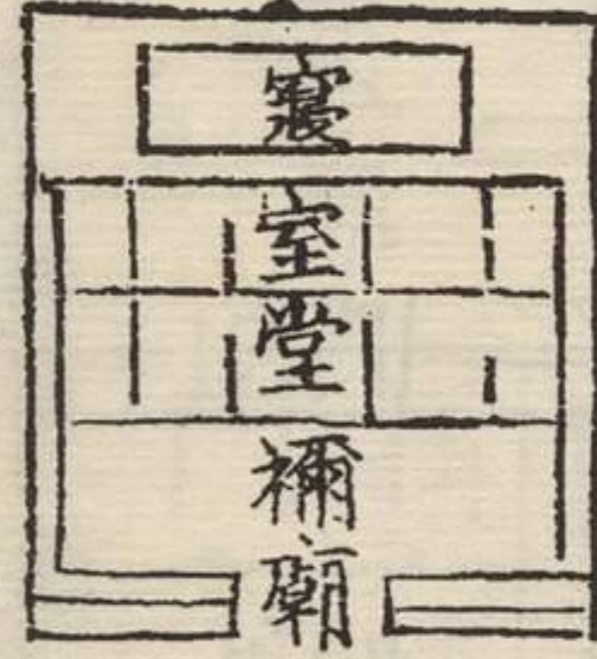 寢
室
堂
禰
廟